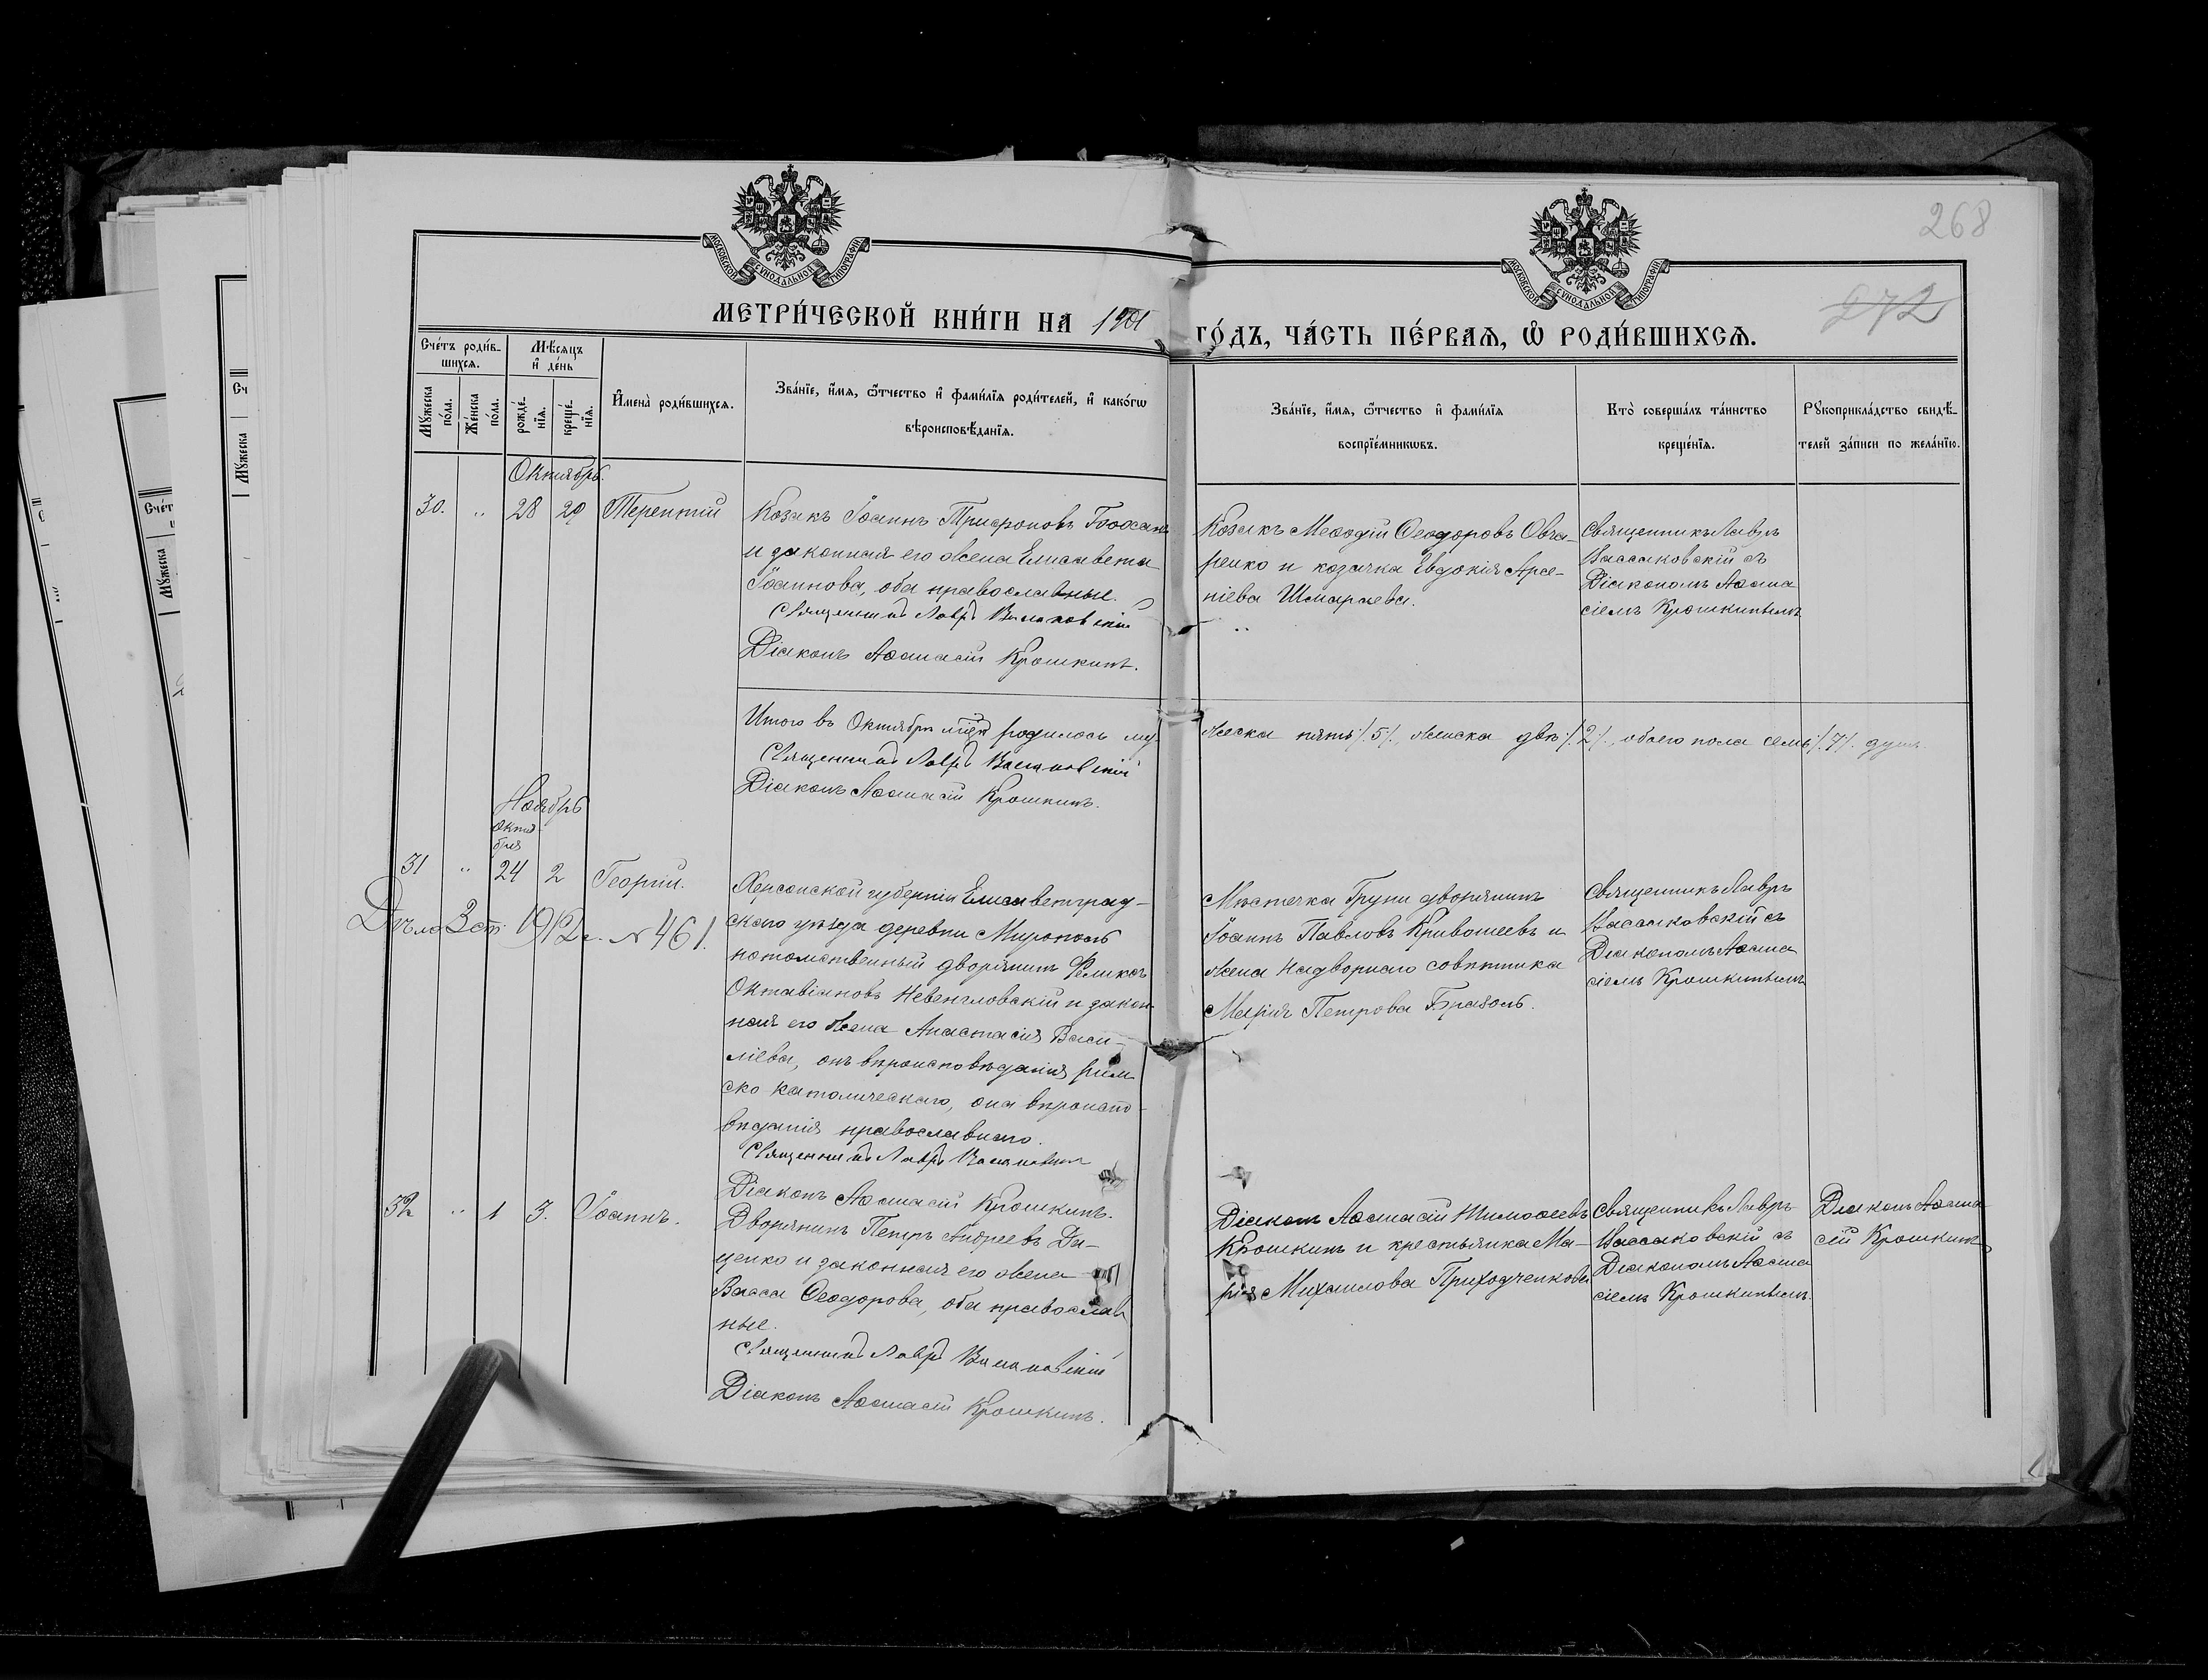 268
272
МОСКОВСКОЙ СѴНОДАЛЬНОЙ ТИПОГРАФІИ
МОСКОВСКОЙ СѴНОДАЛЬНОЙ ТИПОГРАФІИ
МЕТРИ́ЧЕСКОЙ КНИ́ГИ НА 1901 ГО́ДЪ, ЧА́СТЬ ПЕ́РВАѦ, Ѡ҆ РОДИ́ВШИХСѦ.
Сче́тъ роди́в-
шихсѧ.
Мꙋ́жеска по́ла.
Же́нска по́ла.
Мѣ́сѧцъ
и҆ де́нь
рожде́-
нїѧ.
креще́-
нїѧ.
И҆мена̀ роди́вшихсѧ.
Зва́нїе, и҆́мѧ, ѻ҆́тчество и҆ фами́лїѧ роди́телей, и҆ како́гѡ
вѣроисповѣ́данїѧ.
Зва́нїе, и҆́мѧ, ѻ҆́тчество и҆ фами́лїѧ
воспрїе́мникѡвъ.
Кто̀ соверша́лъ та́инство
креще́нїѧ.
Рꙋкоприкла́дство свидѣ́-
телей за́писи по жела́нїю.
Октябрь.
30. " 28 29 Терентий
Козакъ Іоаннъ
и законная его жена Елисавета
Іоаннова, оба православные.
Священникъ Лавръ Васаковскій
Діаконъ Аѳанасій Крошкинъ.
Козакъ Меѳодій Ѳеодоровъ Овча-
ренко и козачка Евдокія Арсе-
ніева Шмараева.
Священникъ Лавръ
Васаковскій съ
Діакономъ Аѳана
сіемъ Крошкинымъ
Итого въ Октябрѣ мцѣ родилось му-
жеска пять /5/., женска двѣ /2/., обоего пола семь /7/. душъ.
Священникъ Лавръ Васаковскій
Діаконъ Аѳанасій Крошкинъ.
Ноябрь
Октя-
бря
31 " 24 2 Георгій.
Дѣло 3 ст. 1912 г. № 461.
Херсонской губерніи Елисаветград-
скаго уѣзда деревни Мирополь
потомственный дворянинъ Феликсъ
Октавіановъ Невенгловскій и закон-
ная его жена Анастасія Васи-
ліева, онъ вѣроисповѣданія рим
ско католическаго, она вѣроиспо-
вѣданія православнаго.
Священникъ Лавръ Васаковскій
Діаконъ Аѳанасій Крошкинъ.
Мѣстечка Груни дворянинъ
Іоаннъ Павловъ Кривошеевъ и
жена надворнаго совѣтника
Марія Петрова Бразоль.
Священникъ Лавръ
Васаковскій съ
Діакономъ Аѳана
сіемъ Крошкинымъ
32 " 1 3. Іоаннъ.
Дворянинъ Петръ Андреевъ Да-
ценко и законная его жена
Васса Ѳеодорова, оба православ
ные.
Священникъ Лавръ Васаковскій
Діаконъ Аѳанасій Крошкинъ.
Діаконъ Аѳанасій Тимоѳеевъ
Крошкинъ и крестьянка Ма-
рія Михаилова Приходченкова
Священникъ Лавръ
Васаковскій съ
Діакономъ Аѳана
сіемъ Крошкинымъ.
Діаконъ Аѳана
сій Крошкинъ